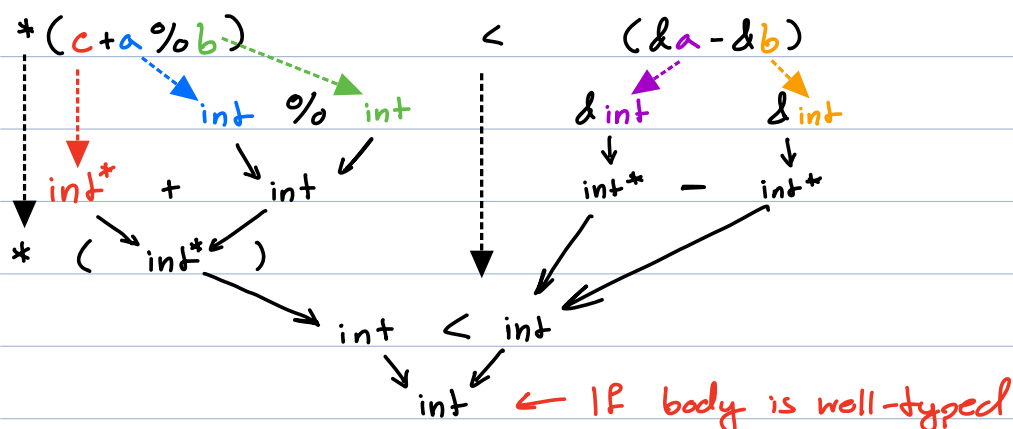 *(c+a%b) < (&a-&b)
int % int &int &int
int* + int int* - int*
* ( int* )
int < int
int ← If body is well-typed